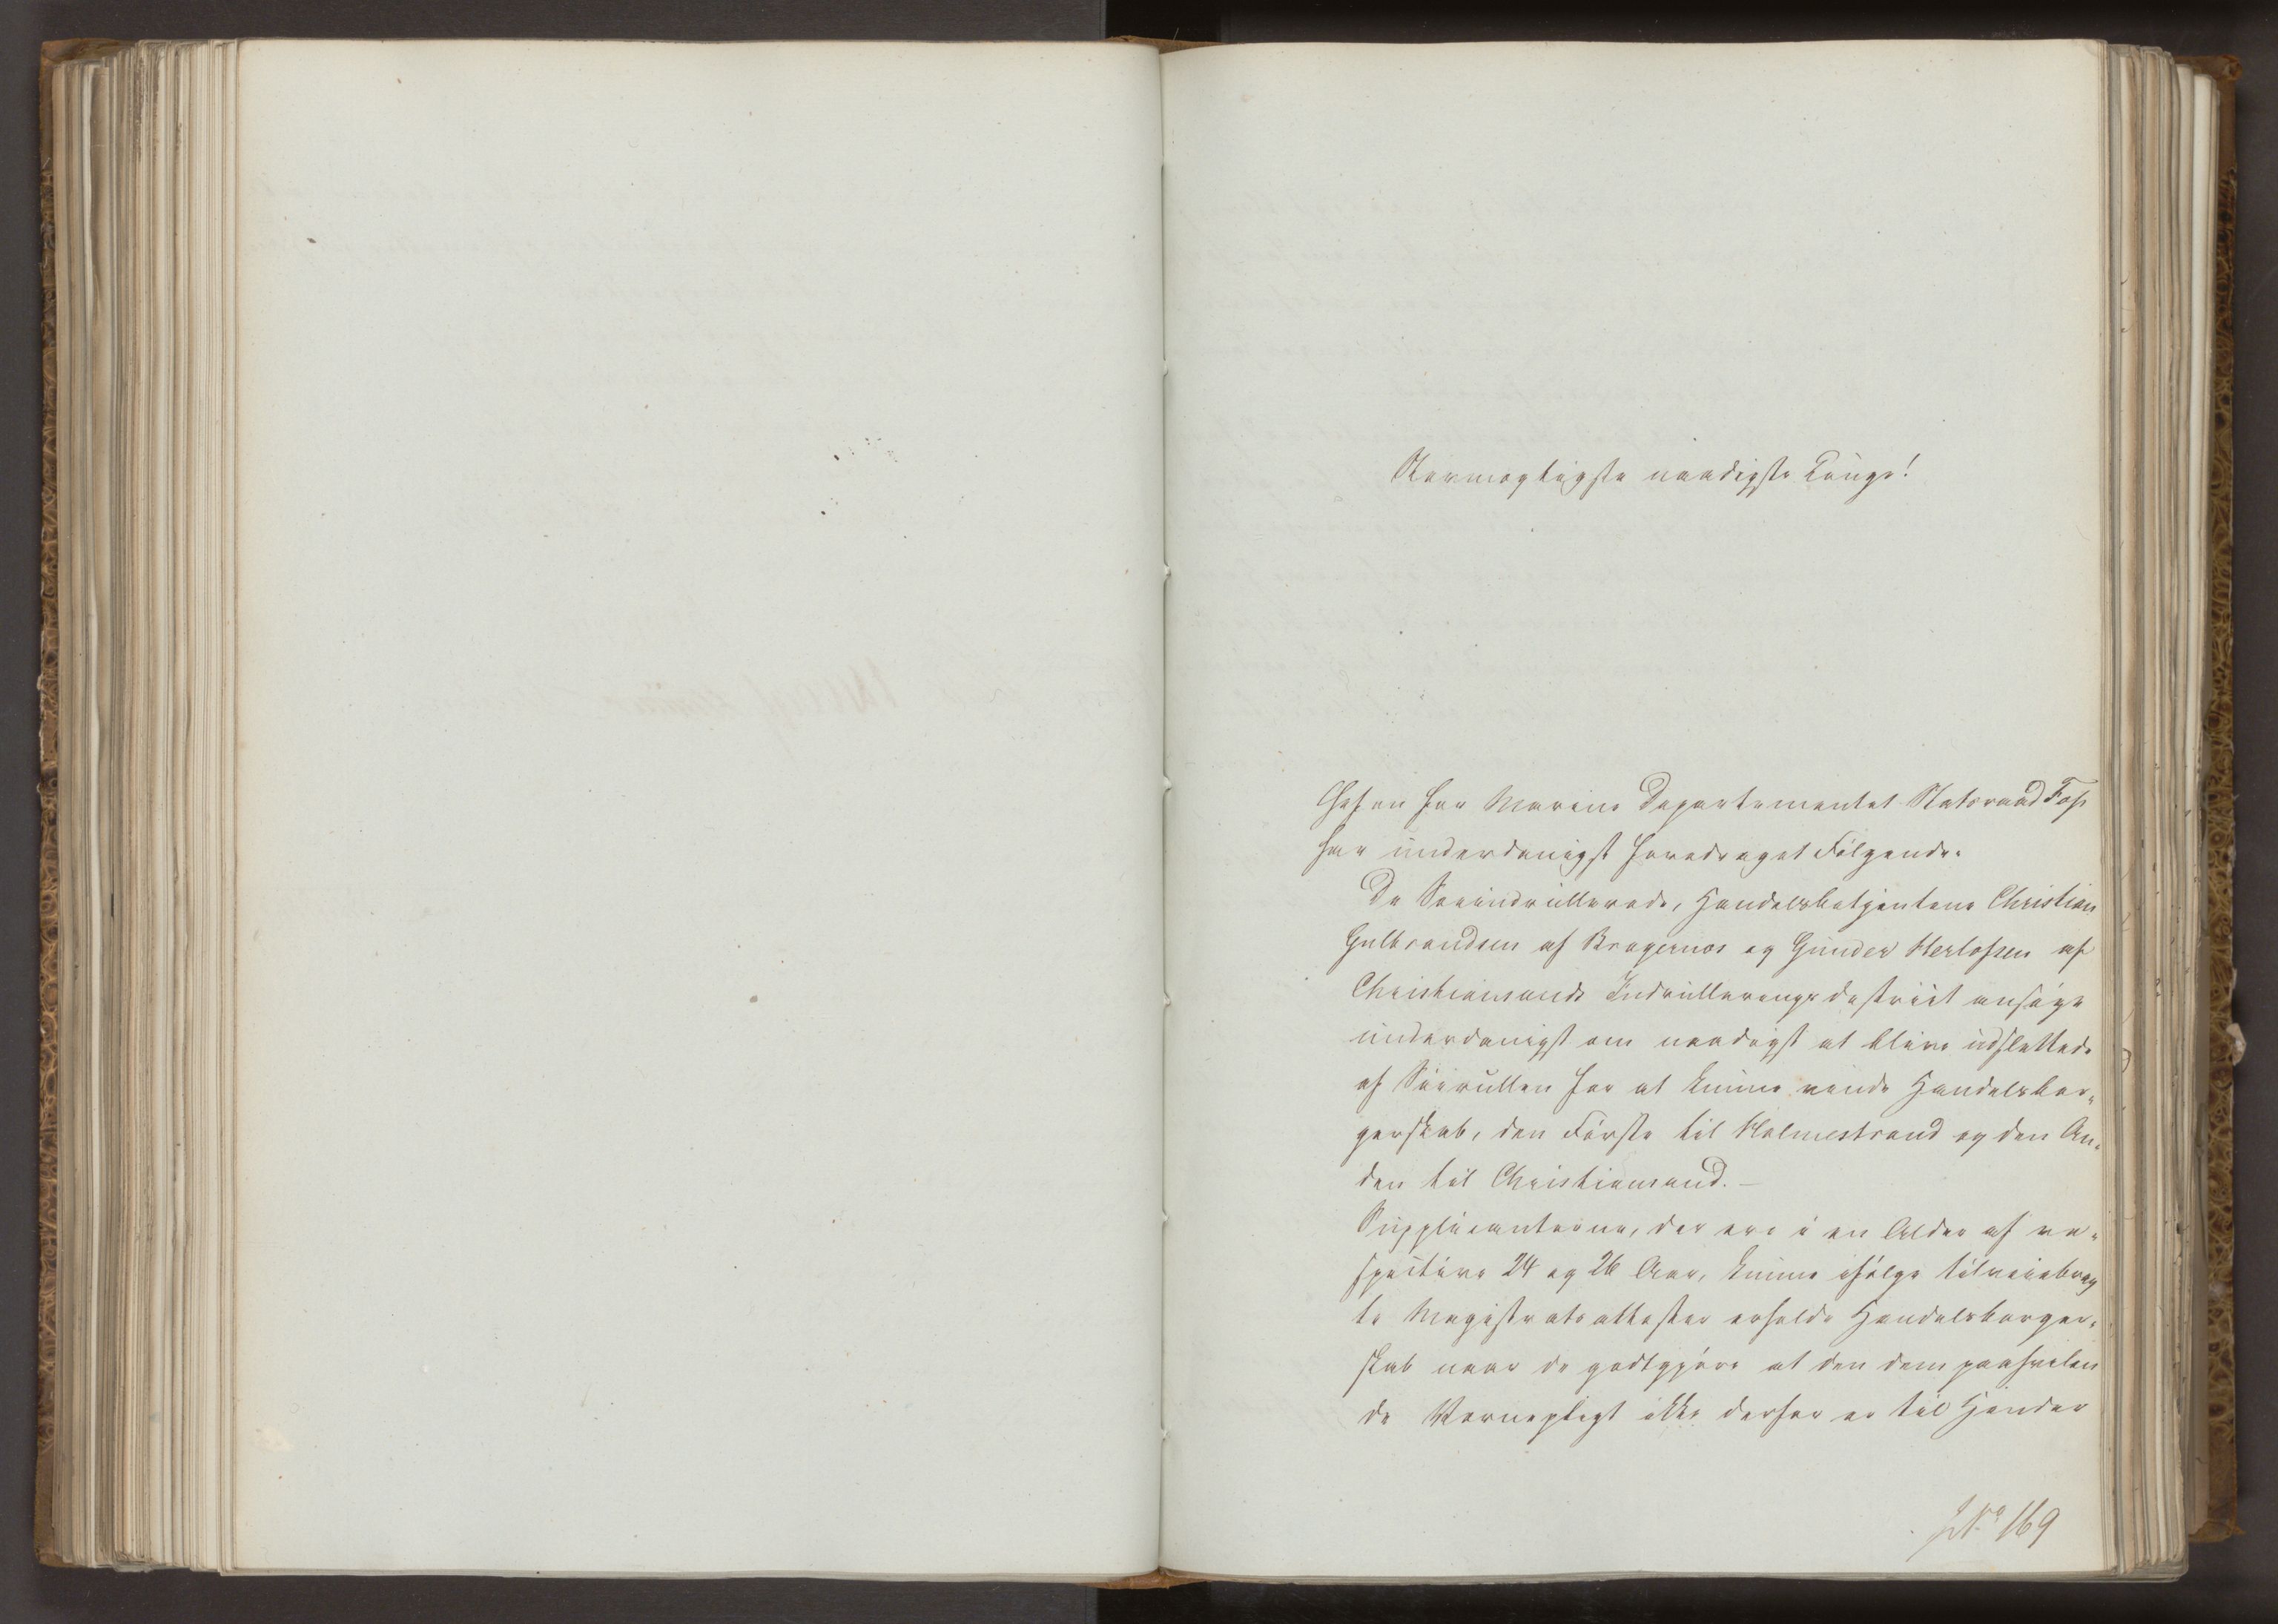 Stormægtigste naadigste Konge!
Chefen for Marine Departementet Statsraad Foss
har underdanigst foredraget Følgende.
De Søeindrullerede, Handelsbetjentene Christian
Gulbrandsen af Bragernæs og Gunder Herlofsen af
Christiansands Indrulleringsdistrict ansøge
underdanigst om naadigst at blive udslettede
af Søerullen for at kunne vinde Handelsbor-
gerskab, den Første til Holmestrand og den An-
den til Christiansand. –
Supplicanterne, der ere i en Alder af re-
spective 24 og 26 Aar, kunne ifølge tilveiebrag
te Magistratsattester erholde Handelsborger-
skab naar de godtgjøre at den dem paahvilen
de Værnepligt ikke derfor er til Hinder
No 169